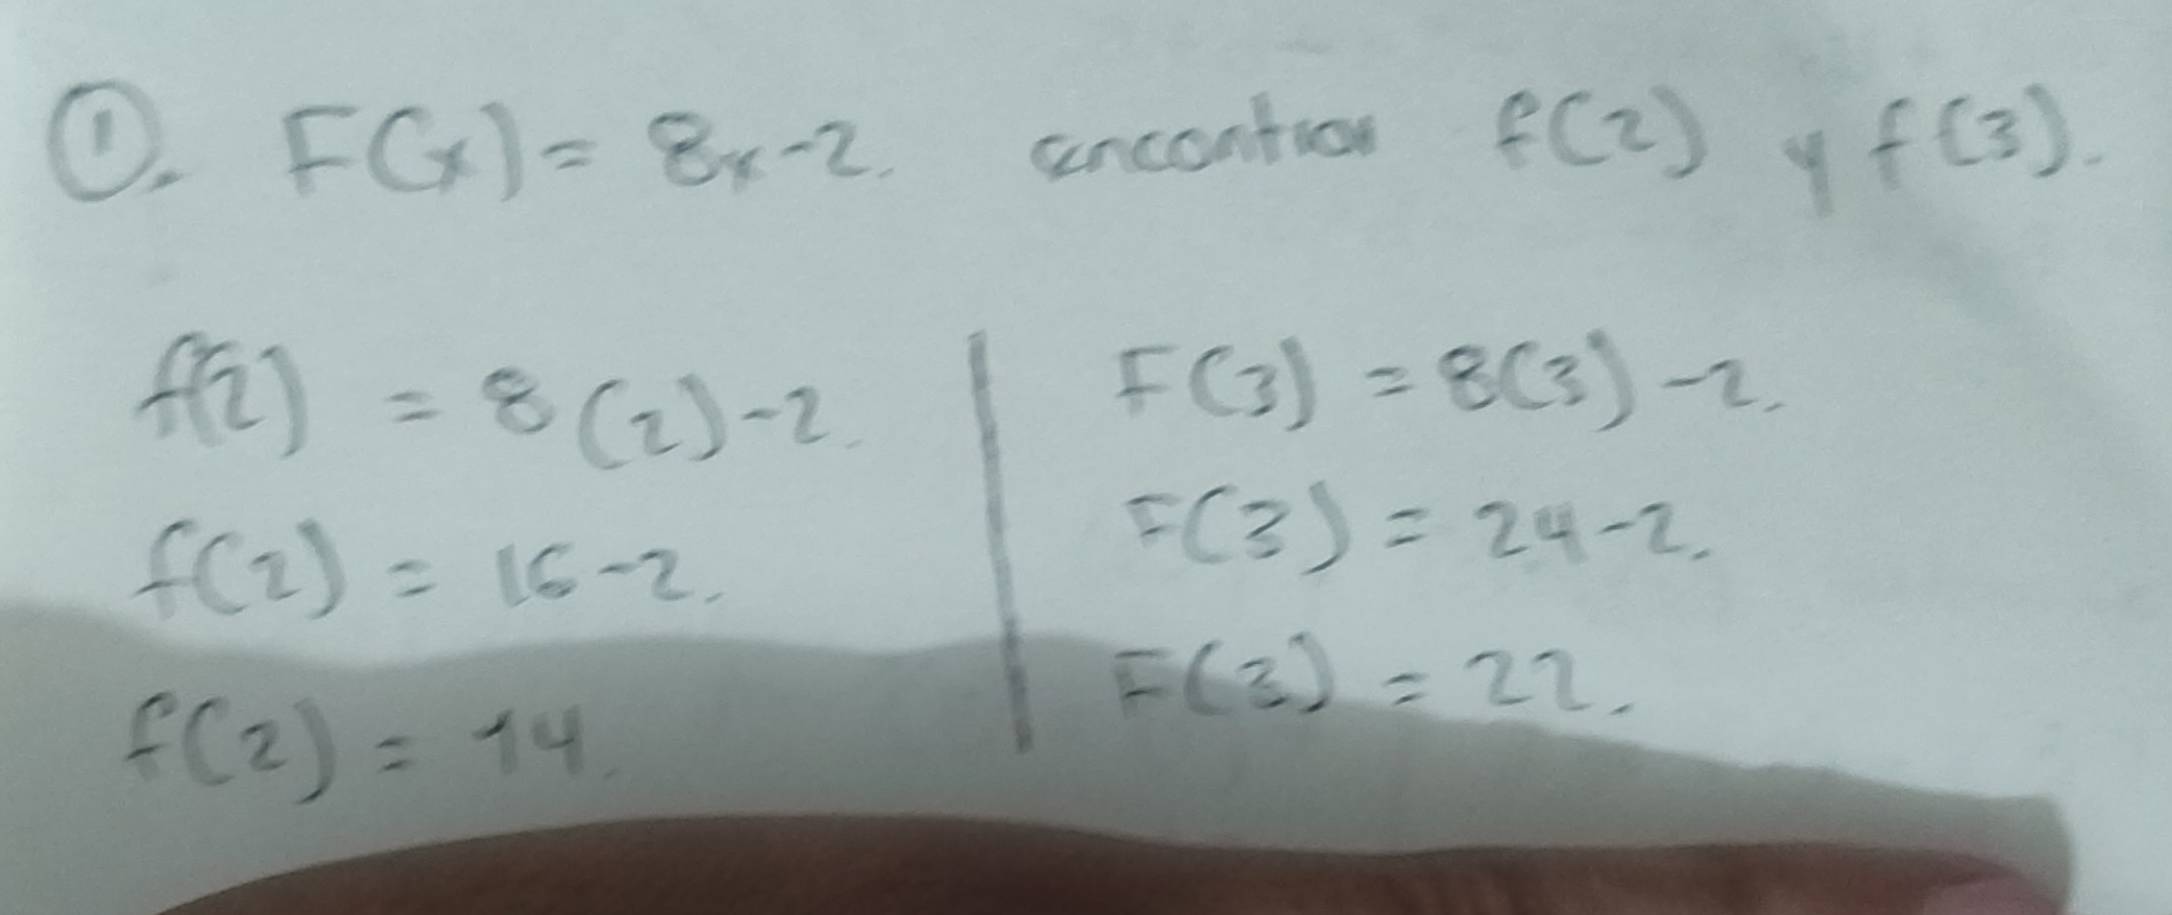 ①. F(x) = 8x-2. encontrar f(2) y f(3).
f(2) = 8(2)-2.
f(2) = 16-2.
f(2) = 14.
F(3) = 8(3)-2.
F(3) = 24-2.
F(3) = 22.